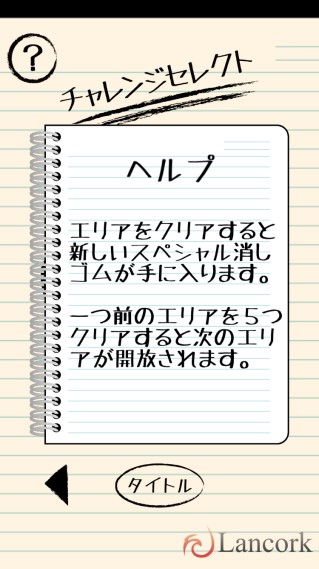 ?
チャレンジセレクト
ヘルプ
エリアをクリアすると
新しいスペシャル消し
ゴムが手に入ります。
一つ前のエリアを５つ
クリアすると次のエリ
アが開放されます。
タイトル
Lancork